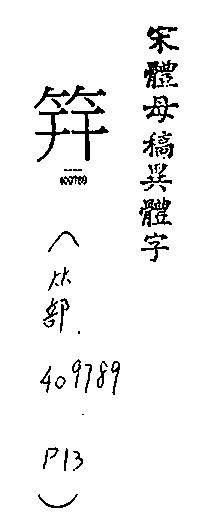 宋體母稿異體字
筓
409789
（竹部. 409789 P13）